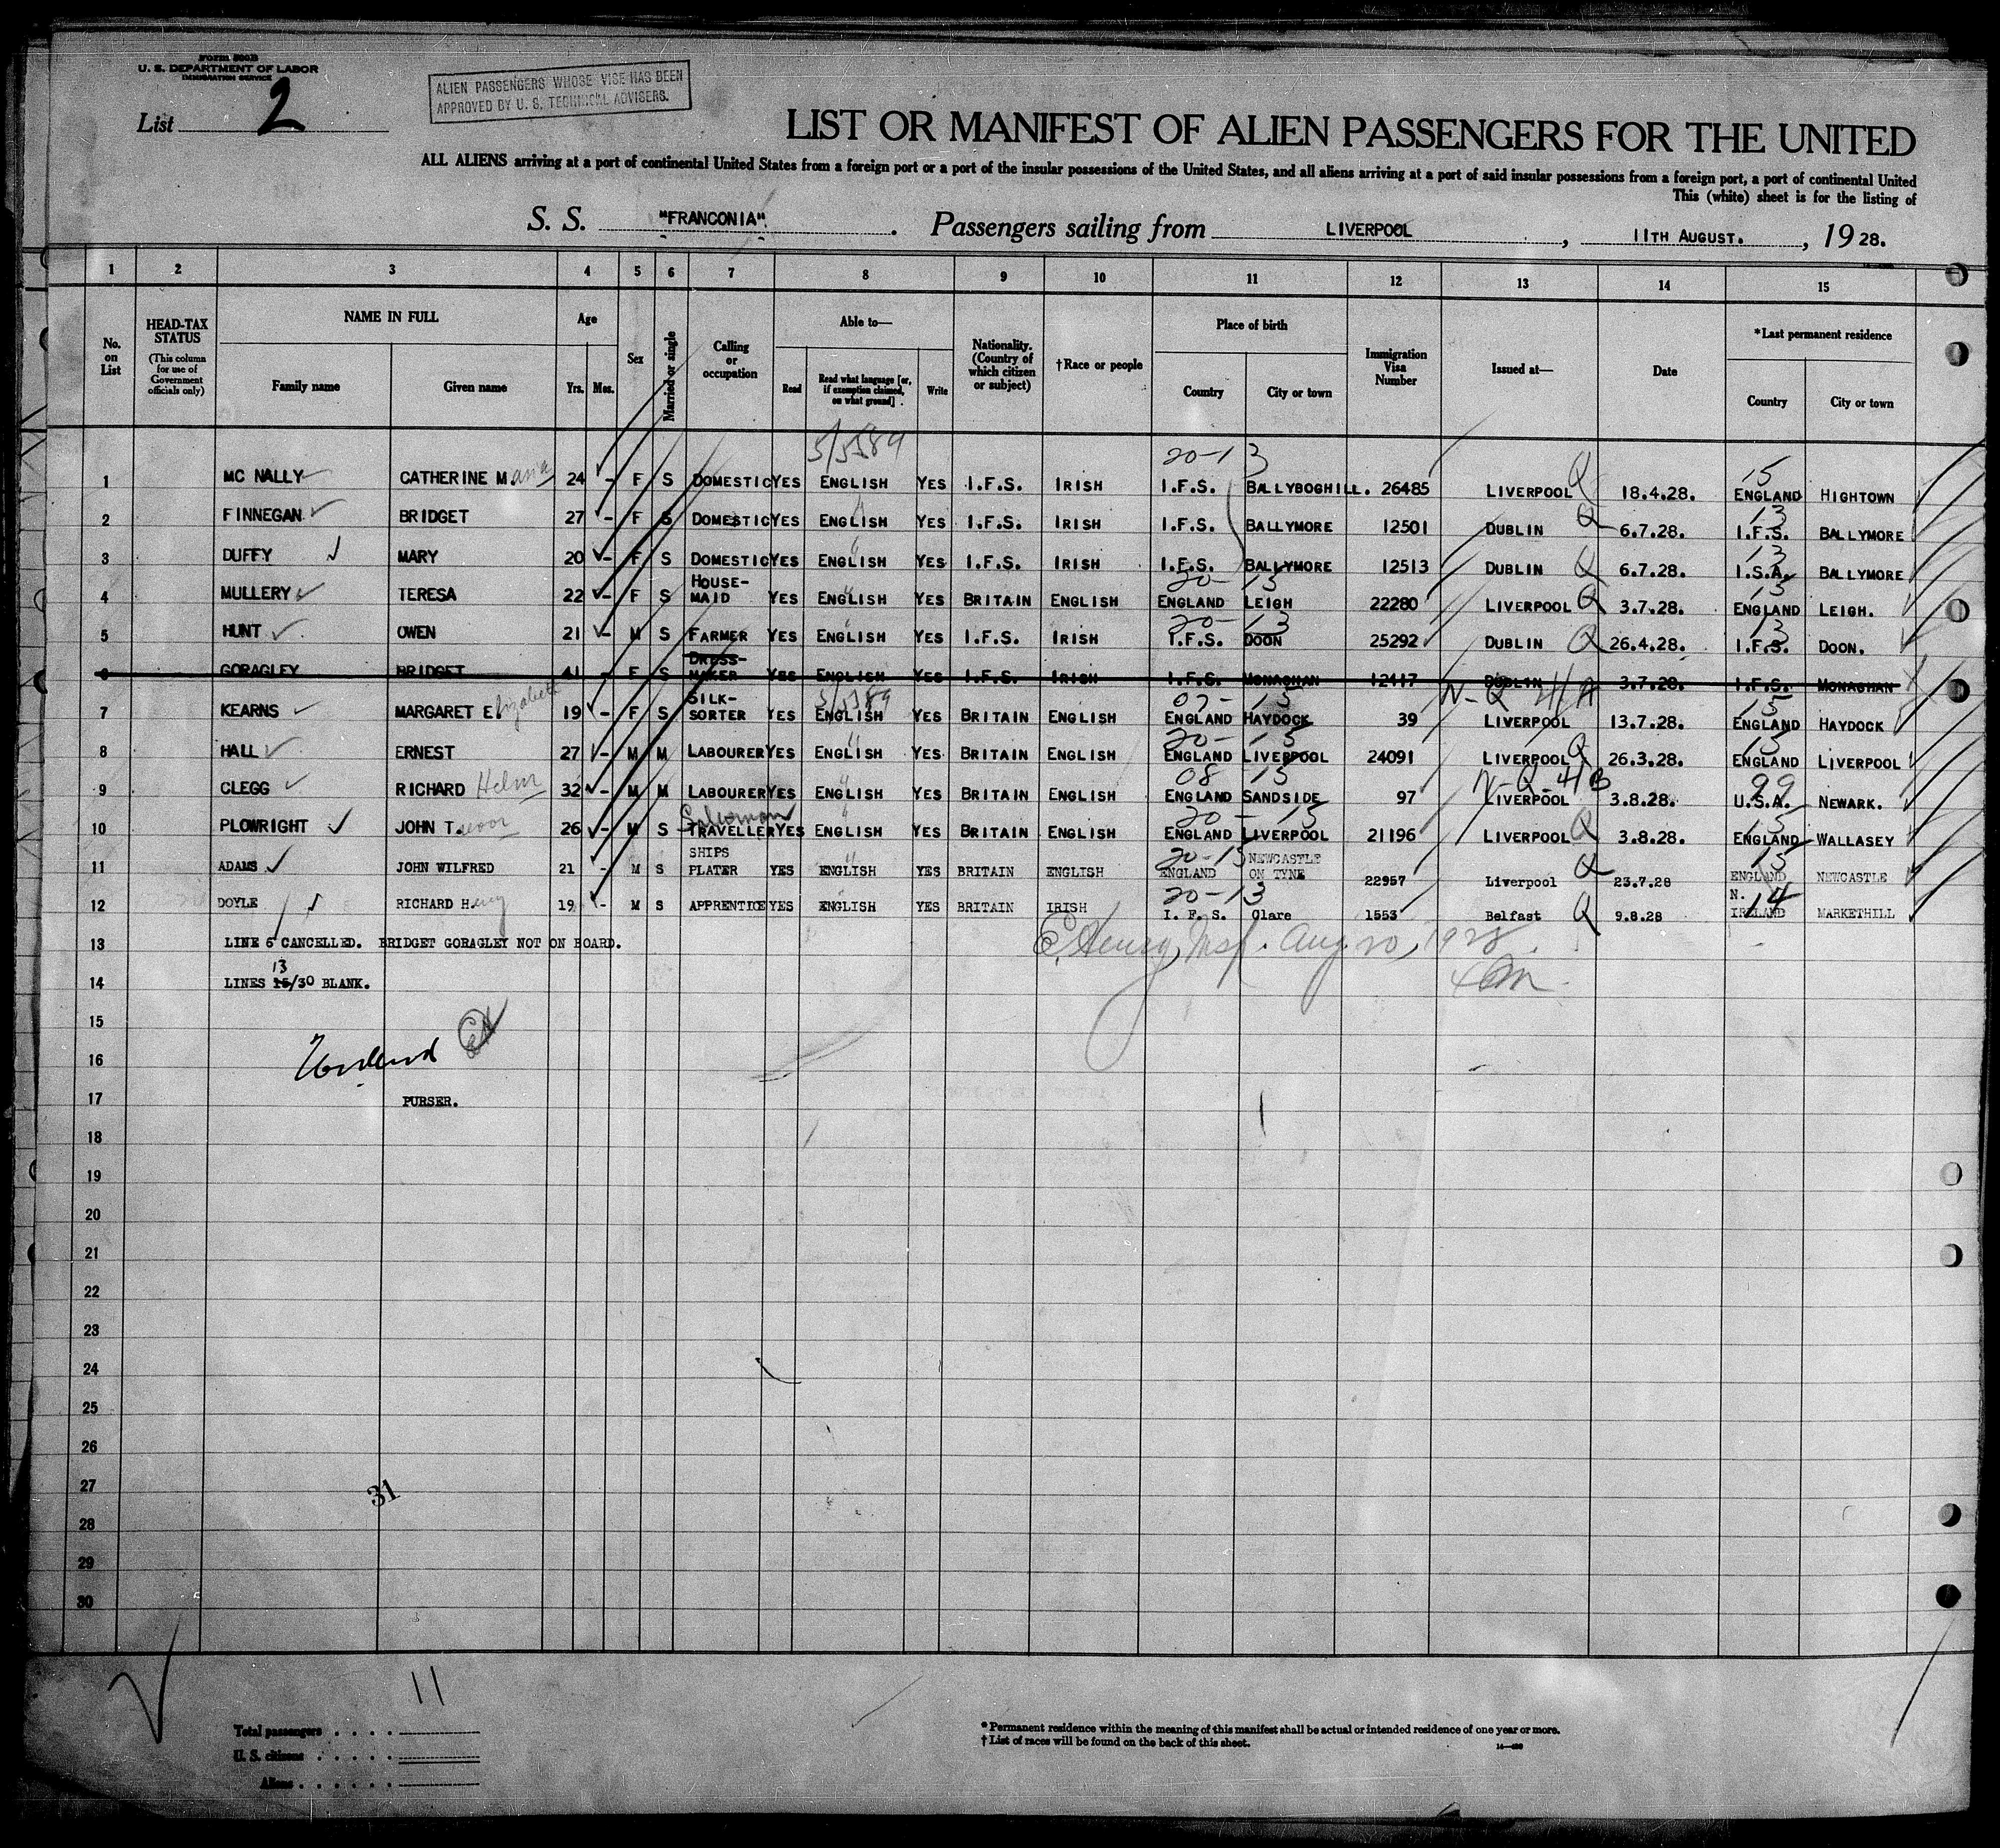 Form 500B
U. S. DEPARTMENT OF LABOR
IMMIGRATION SERVICE
List 2
ALIEN PASSENGERS WHOSE VISE HAS BEEN
APPROVED BY U. S. TECHNICAL ADVISERS.
LIST OR MANIFEST OF ALIEN PASSENGERS FOR THE UNITED
ALL ALIENS arriving at a port of continental United States from a foreign port or a port of the insular possessions of the United States, and all aliens arriving at a port of said insular possessions from a foreign port, a port of continental United
This (white) sheet is for the listing of
S. S. "FRANCONIA". Passengers sailing from LIVERPOOL, 11TH AUGUST., 1928.
1 2 3 4 5 6 7 8 9 10 11 12 13 14 15
No. on List
HEAD-TAX STATUS (This column for use of Government officials only)
NAME IN FULL Family name Given name
Age Yrs. Mos.
Sex
Married or single
Calling or occupation
Able to— Read Read what language [or, if exemption claimed, on what ground] Write
Nationality. (Country of which citizen or subject)
†Race or people
Place of birth Country City or town
Immigration Visa Number
Issued at—
Date
*Last permanent residence Country City or town
5/5389 20-13 15
1 MC NALLY CATHERINE M.aria 24 - F S DOMESTIC YES ENGLISH YES I.F.S. IRISH I.F.S. BALLYBOGHILL. 26485 LIVERPOOL Q 18.4.28. ENGLAND HIGHTOWN
13
2 FINNEGAN BRIDGET 27 - F S DOMESTIC YES ENGLISH YES I.F.S. IRISH I.F.S. BALLYMORE 12501 DUBLIN Q 6.7.28. I.F.S. BALLYMORE
13
3 DUFFY MARY 20 - F S DOMESTIC YES ENGLISH YES I.F.S. IRISH I.F.S. BALLYMORE 12513 DUBLIN Q 6.7.28. I.S.A. BALLYMORE
20- 15 15
4 MULLERY TERESA 22 - F S HOUSE-MAID YES ENGLISH YES BRITAIN ENGLISH ENGLAND LEIGH 22280 LIVERPOOL Q 3.7.28. ENGLAND LEIGH.
20- 13 13
5 HUNT OWEN 21 - M S FARMER YES ENGLISH YES I.F.S. IRISH I.F.S. DOON 25292 DUBLIN Q 26.4.28. I.F.S. DOON.
6 GORAGLEY BRIDGET 41 - F S DRESS-MAKER YES ENGLISH YES I.F.S. IRISH I.F.S. MONAGHAN 12417 DUBLIN 3.7.28. I.F.S. MONAGHAN
5/5389 07- 15 N-Q 4/A 15
7 KEARNS MARGARET E.lizabeth 19 - F S SILK-SORTER YES ENGLISH YES BRITAIN ENGLISH ENGLAND HAYDOCK 39 LIVERPOOL 13.7.28. ENGLAND HAYDOCK
20- 15 15
8 HALL ERNEST 27 - M M LABOURER YES ENGLISH YES BRITAIN ENGLISH ENGLAND LIVERPOOL 24091 LIVERPOOL Q 26.3.28. ENGLAND LIVERPOOL
08 15 N-Q-4/B 99
9 CLEGG RICHARD Helm 32 - M M LABOURER YES ENGLISH YES BRITAIN ENGLISH ENGLAND SANDSIDE 97 LIVERPOOL 3.8.28. U.S.A. NEWARK.
Salesman 20-15 15
10 PLOWRIGHT JOHN T.revor 26 - M S TRAVELLER YES ENGLISH YES BRITAIN ENGLISH ENGLAND LIVERPOOL 21196 LIVERPOOL Q 3.8.28. ENGLAND WALLASEY
20-15 15
11 ADAMS JOHN WILFRED 21 - M S SHIPS PLATER YES ENGLISH YES BRITAIN ENGLISH ENGLAND NEWCASTLE ON TYNE 22957 Liverpool Q 23.7.28 ENGLAND NEWCASTLE
20-13 14
12 DOYLE RICHARD Henry 19 - M S APPRENTICE YES ENGLISH YES BRITAIN IRISH I. F. S. Clare 1553 Belfast Q 9.8.28 N. IRELAND MARKETHILL
13 LINE 6 CANCELLED. BRIDGET GORAGLEY NOT ON BOARD.
E. Henry, Insp. Aug 20, 1928
13
14 LINES 15/30 BLANK.
15
16
17 PURSER.
18
19
20
21
22
23
24
25
26
27
31
28
29
30
11
Total passengers
U. S. citizens
Aliens
*Permanent residence within the meaning of this manifest shall be actual or intended residence of one year or more.
†List of races will be found on the back of this sheet.